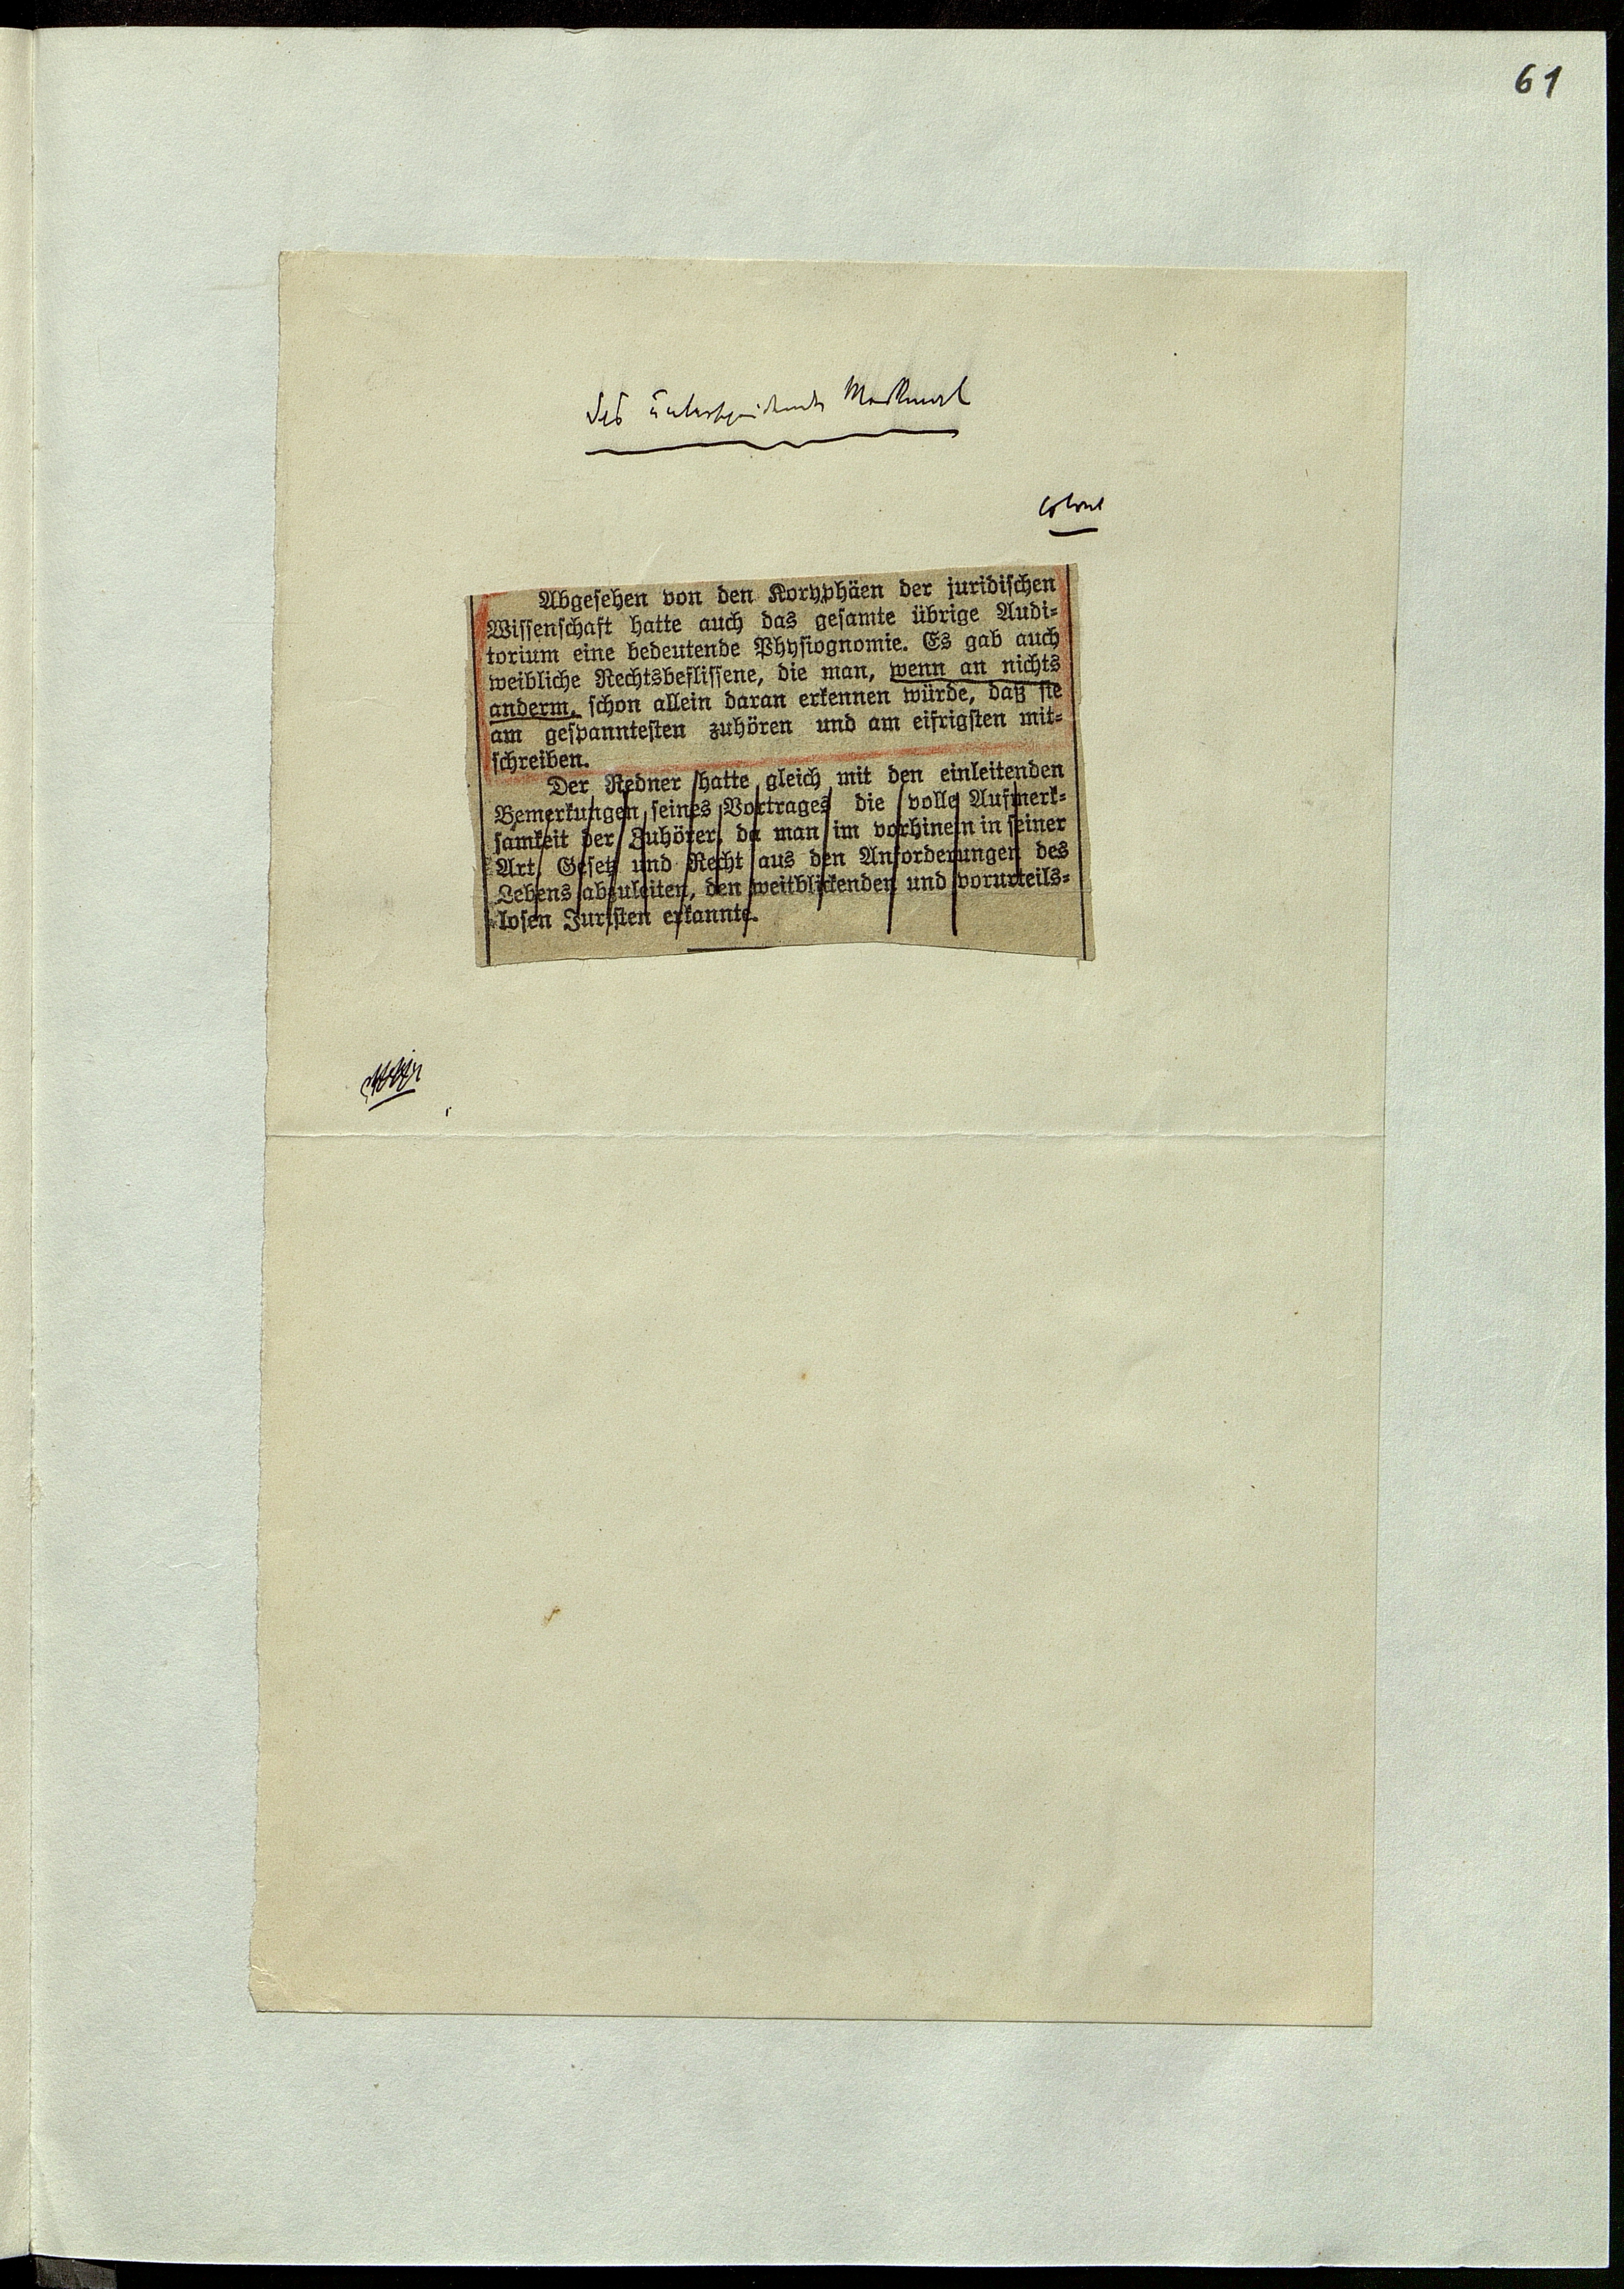 61
Das unterscheidende Merkmal
Abgesehen von den Koryphäen der juridischen
Wissenschaft hatte auch das gesamte übrige Audi-
torium eine bedeutende Physiognomie. Es gab auch
weibliche Rechtsbeflissene, die man, wenn an nichts
anderm, schon allein daran erkennen würde, daß sie
am gespanntesten zuhören und am eifrigsten mit-
schreiben.
Der Redner hatte gleich mit den einleitenden
Bemerkungen seines Vortrages die volle Aufmerk-
samkeit der Zuhörer, da man im vorhinein in seiner
Art, Gesetz und Recht aus den Anforderungen des
Lebens abzuleiten, den weitblickenden und vorurteils-
losen Juristen erkannte.